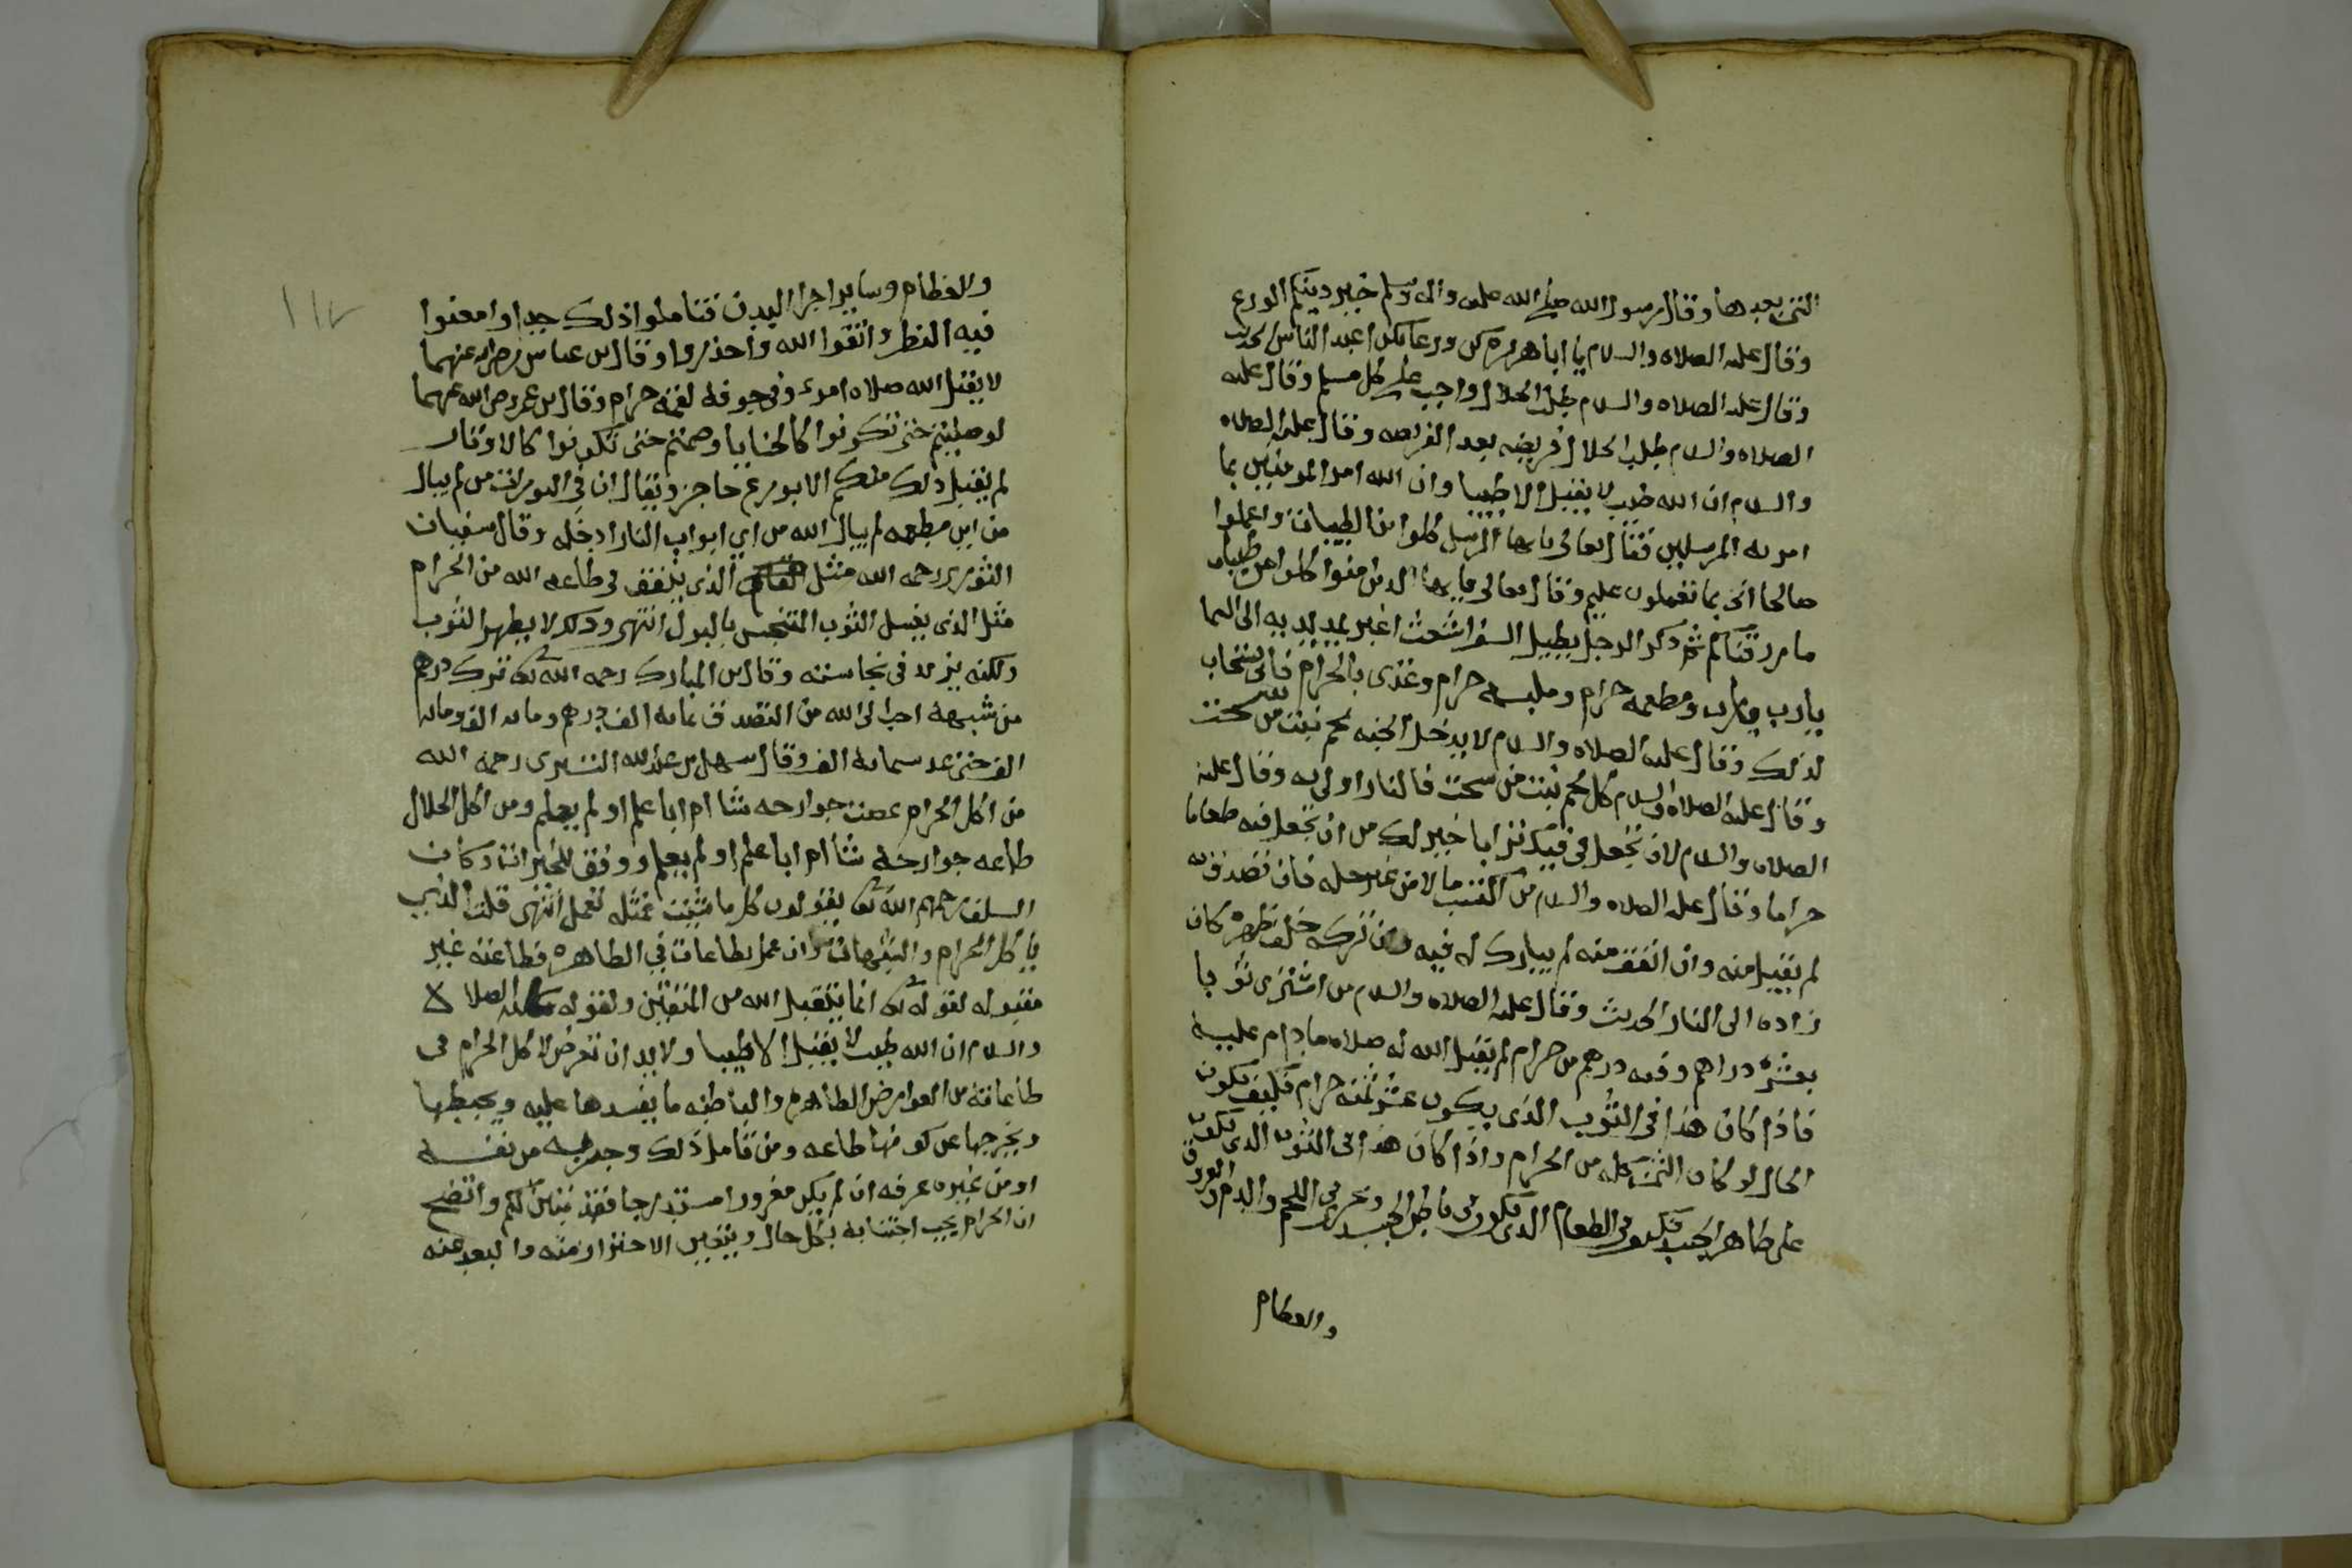 التى بعدها وقال رسول الله صلى الله عليه واله وسلم خير دينكم الورع
وقال عليه الصلاه والسلام يا ابا هريره كن ورعا تكن اعبد الناس الحديث
وقال عليه الصلاه والسلام طلب الحلال واجب على كل مسلم وقال عليه
الصلاه والسلام طلب الحلال فريضه بعد الفريضه وقال عليه الصلاه
والسلام ان الله طيب لا يقبل الا طيبا وان الله امر المومنين بما
امر به المرسلين فقال تعالى يا ايها الرسل كلوا من الطيبات واعملوا
صالحا انى بما تعملون عليم وقال تعالى يا ايها الذين امنوا كلوا من طيبات
ما رزقناكم ثم ذكر الرجل يطيل السفر اشعث اغبر يمد يديه الى السما
يارب يارب ومطعمه حرام وملبسه حرام وغذى بالحرام فانى يستجاب
لذلك وقال عليه الصلاه والسلام لا يدخل الجنه لحم نبت من سحت
وقال عليه الصلاه والسلام كل لحم نبت من سحت فالنار اولى به وقال عليه
الصلاه والسلام لان تجعل فى فيك ترابا خير لك من ان تجعل فيه طعاما
حراما وقال عليه الصلاه والسلام من اكتسب مالا من غير حله فان تصدق به
لم يقبل منه وان انفق منه لم يبارك له فيه وان تركه خلف ظهره كان
زاده الى النار الحديث وقال عليه الصلاه والسلام من اشترى ثوبا
بعشره دراهم وفيه درهم من حرام لم يقبل الله له صلاه ما دام عليه
فاذا كان هذا فى الثوب الذى يكون عشر ثمنه حرام فكيف يكون
الحال لو كان الثمن كله من الحرام واذا كان هذا فى الثوب الذى يكون
على ظاهر الجسد فكيف فى الطعام الذى يكون فى باطن الجسد ويجرى فى اللحم والدم والعروق
والعظام
والعظام وساير اجزا البدن فتاملوا ذلك جدا وامعنوا
فيه النظر واتقوا الله واحذروا وقال بن عباس رضى الله عنهما
لا يقبل الله صلاه امرء وفى جوفه لقمه حرام وقال بن عمر رضى الله عنهما
لو صليتم حتى تكونوا كالحنايا وصمتم حتى تكونوا كالاوتار
لم يقبل ذلك منكم الا بورع حاجز ويقال ان فى التوراه من لم يبال
من اين مطعمه لم يبال الله من اى ابواب النار ادخله وقال سفيان
الثورى رحمه الله مثل الذى ينفق فى طاعه الله من الحرام
مثل الذى يغسل الثوب المتنجس بالبول انتهى وذلك لا يطهر الثوب
ولكنه يزيد فى نجاسته وقال بن المبارك رحمه الله تعالى ترك درهم
من شبهة احب الى الله من التصدق بمايه الف درهم ومايه الف ومايه
الف حتى عد ستمايه الف وقال سهل بن عبد الله التسترى رحمه الله
من اكل الحرام عصت جوارحه شا ام ابا علم او لم يعلم ومن اكل الحلال
طاعه جوارحه شا ام ابا علم او لم يعلم ووفق للخيرات وكان
السلف رحمهم الله تعالى يقولون كل ما شئت فمثله تعمل انتهى قلت الذى
ياكل الحرام والشبهات وان عمل بطاعات فى الظاهره فطاعته غير
مقبوله لقوله تعالى انما يتقبل الله من المتقين ولقوله عليه الصلاه
والسلام ان الله طيب لا يقبل الا طيبا ولا بد ان تعرض لاكل الحرام فى
طاعاته من العوارض الظاهره والباطنه ما يفسدها عليه ويحبطها
ويخرجها عن كونها طاعه ومن تامل ذلك وجربه من نفسه
او من غيره عرفه ان لم يكن مغرورا مستدرجا فقد تبين لكم واتضح
ان الحرام يجب اجتنابه بكل حال ويتعين الاحتراز منه والبعد عنه